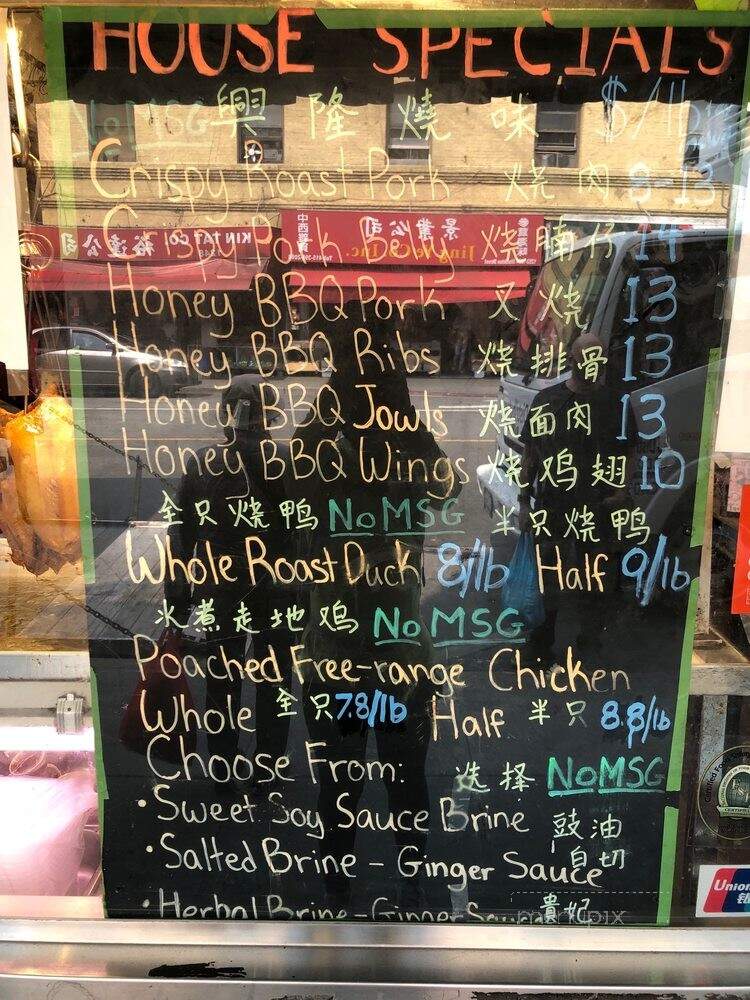 HOUSE SPECIALS
No MSG 興隆燒味 $/lb
Crispy Roast Pork 烧肉 8-13
Crispy Pork Belly 烧腩仔 14
Honey BBQ Pork 叉烧 13
Honey BBQ Ribs 烧排骨 13
Honey BBQ Jowls 烧面肉 13
Honey BBQ Wings 烧鸡翅 10
全只烧鸭 No MSG 半只烧鸭
Whole Roast Duck 8/lb Half 9/lb
水煮走地鸡 No MSG
Poached Free-range Chicken
Whole 全只 7.8/lb Half 半只 8.8/lb
Choose From: 选择 No MSG
• Sweet Soy Sauce Brine 豉油
• Salted Brine - Ginger Sauce 白切
• Herbal Brine - Ginger Sauce 貴妃
KIN TAT CO
裕達公司
中西
景業公司
Jing Ye Co Inc.
Union
银
menupix